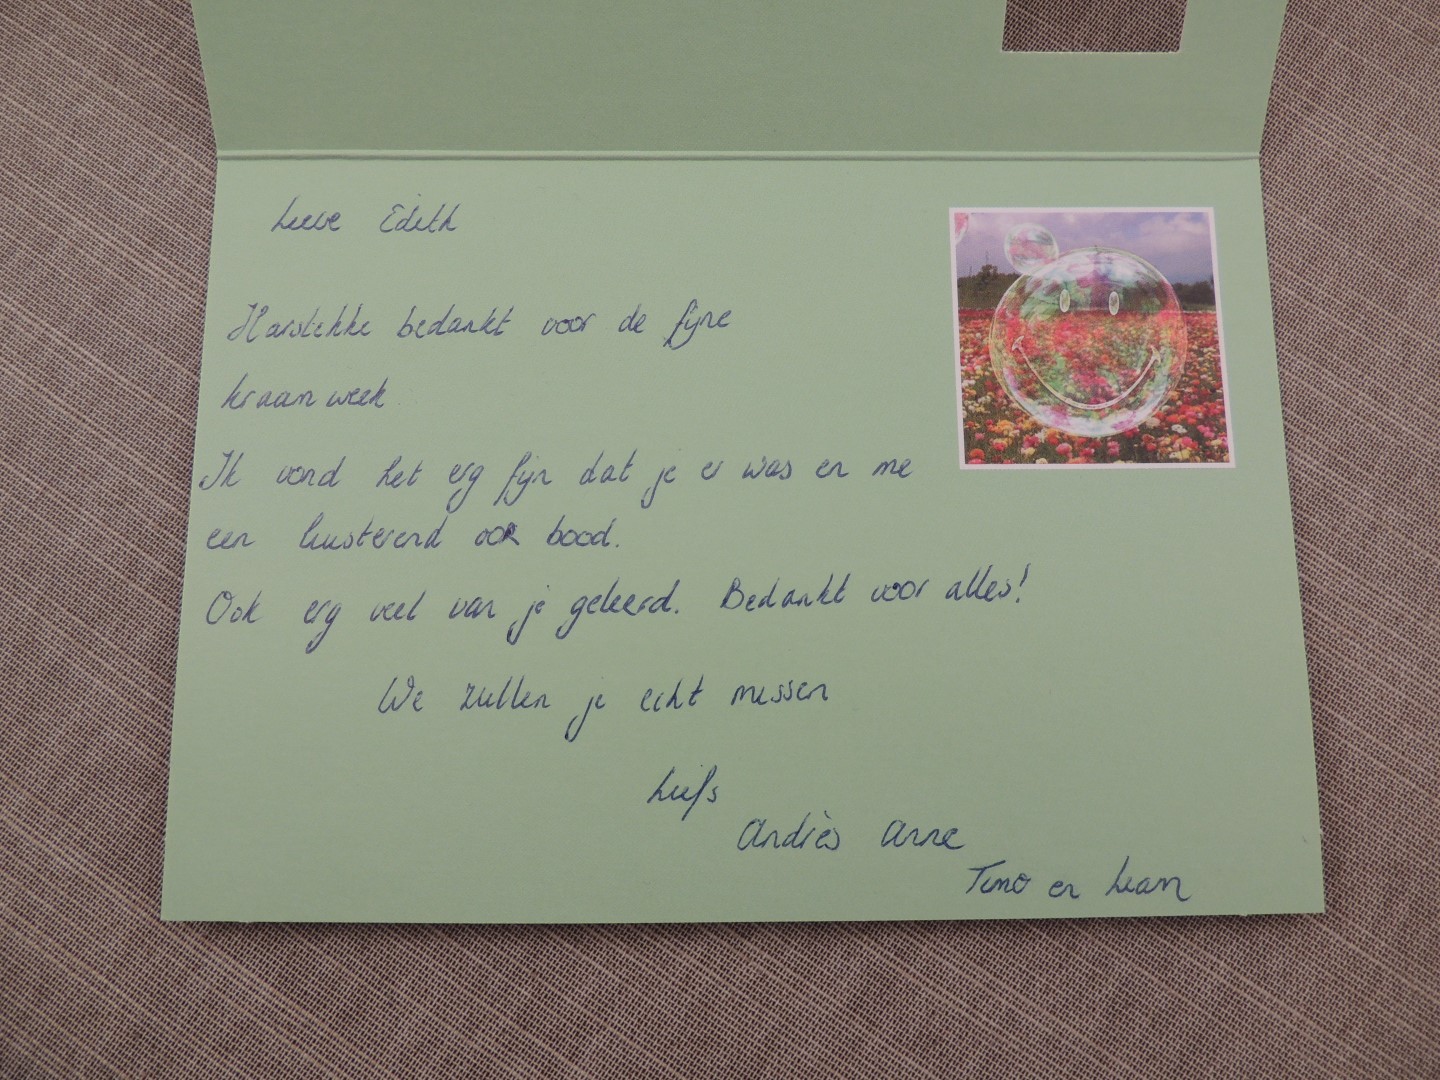 Lieve Edith
Harstikke bedankt voor de fijne
kraamweek
Ik vond het erg fijn dat je er was en me
een luisterend oor bood.
Ook erg veel van je geleerd. Bedankt voor alles!
We zullen je echt missen
Liefs
Andrès Anne
Timo en Liam